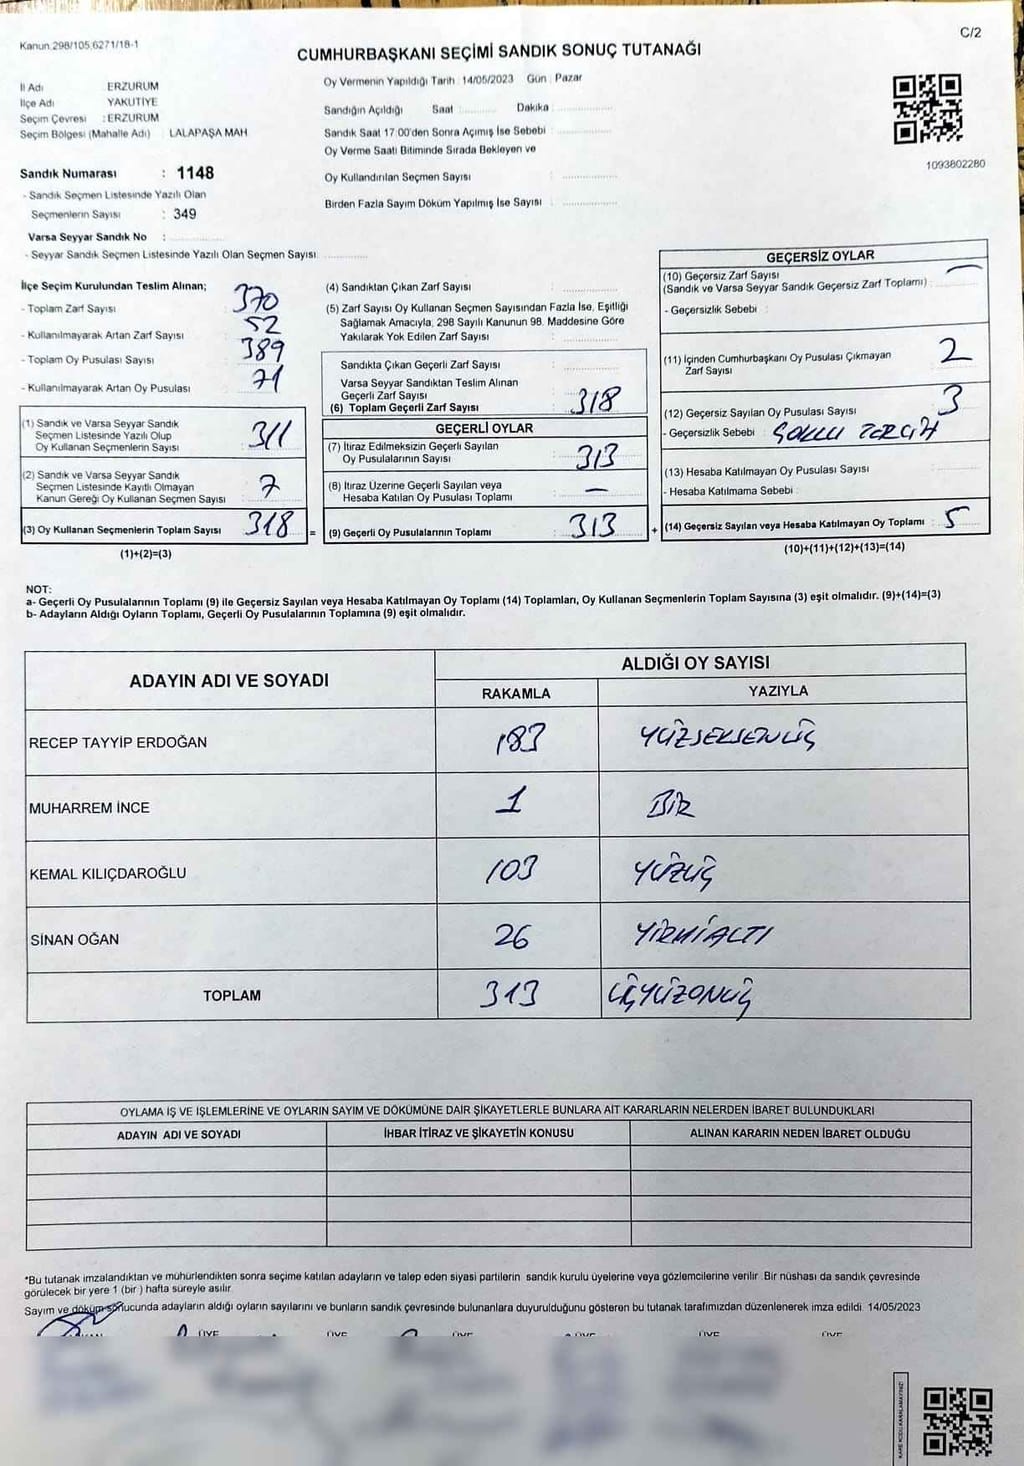 Kanun 298/105.6271/18-1
C/2
CUMHURBAŞKANI SEÇİMİ SANDIK SONUÇ TUTANAĞI
İl Adı ERZURUM
İlçe Adı YAKUTİYE
Seçim Çevresi : ERZURUM
Seçim Bölgesi (Mahalle Adı) LALAPAŞA MAH
Sandık Numarası : 1148
- Sandık Seçmen Listesinde Yazılı Olan
Seçmenlerin Sayısı : 349
Varsa Seyyar Sandık No :
- Seyyar Sandık Seçmen Listesinde Yazılı Olan Seçmen Sayısı:
Oy Vermenin Yapıldığı Tarih : 14/05/2023 Gün : Pazar
Sandığın Açıldığı Saat Dakika
Sandık Saat 17.00'den Sonra Açımış İse Sebebi :
Oy Verme Saati Bitiminde Sırada Bekleyen ve
Oy Kullandırılan Seçmen Sayısı :
Birden Fazla Sayım Döküm Yapılmış İse Sayısı :
1093802280
İlçe Seçim Kurulundan Teslim Alınan;
- Toplam Zarf Sayısı : 370
- Kullanılmayarak Artan Zarf Sayısı : 52
- Toplam Oy Pusulası Sayısı : 389
- Kullanılmayarak Artan Oy Pusulası : 71
(1) Sandık ve Varsa Seyyar Sandık
Seçmen Listesinde Yazılı Olup
Oy Kullanan Seçmenlerin Sayısı : 311
(2) Sandık ve Varsa Seyyar Sandık
Seçmen Listesinde Kayıtlı Olmayan
Kanun Gereği Oy Kullanan Seçmen Sayısı : 7
(3) Oy Kullanan Seçmenlerin Toplam Sayısı : 318 =
(1)+(2)=(3)
(4) Sandıktan Çıkan Zarf Sayısı :
(5) Zarf Sayısı Oy Kullanan Seçmen Sayısından Fazla İse, Eşitliği
Sağlamak Amacıyla, 298 Sayılı Kanunun 98. Maddesine Göre
Yakılarak Yok Edilen Zarf Sayısı :
Sandıkta Çıkan Geçerli Zarf Sayısı :
Varsa Seyyar Sandıktan Teslim Alınan
Geçerli Zarf Sayısı :
(6) Toplam Geçerli Zarf Sayısı : 318
GEÇERLİ OYLAR
(7) İtiraz Edilmeksizin Geçerli Sayılan
Oy Pusulalarının Sayısı : 313
(8) İtiraz Üzerine Geçerli Sayılan veya
Hesaba Katılan Oy Pusulası Toplamı : —
(9) Geçerli Oy Pusulalarının Toplamı : 313 +
GEÇERSİZ OYLAR
(10) Geçersiz Zarf Sayısı —
(Sandık ve Varsa Seyyar Sandık Geçersiz Zarf Toplamı) :
- Geçersizlik Sebebi :
(11) İçinden Cumhurbaşkanı Oy Pusulası Çıkmayan 2
Zarf Sayısı
(12) Geçersiz Sayılan Oy Pusulası Sayısı : 3
- Geçersizlik Sebebi :
(13) Hesaba Katılmayan Oy Pusulası Sayısı :
- Hesaba Katılmama Sebebi :
(14) Geçersiz Sayılan veya Hesaba Katılmayan Oy Toplamı : 5
(10)+(11)+(12)+(13)=(14)
NOT:
a- Geçerli Oy Pusulalarının Toplamı (9) ile Geçersiz Sayılan veya Hesaba Katılmayan Oy Toplamı (14) Toplamları, Oy Kullanan Seçmenlerin Toplam Sayısına (3) eşit olmalıdır. (9)+(14)=(3)
b- Adayların Aldığı Oyların Toplamı, Geçerli Oy Pusulalarının Toplamına (9) eşit olmalıdır.
ADAYIN ADI VE SOYADI ALDIĞI OY SAYISI
RAKAMLA YAZIYLA
RECEP TAYYİP ERDOĞAN 183 YÜZSEKSENÜÇ
MUHARREM İNCE 1 BİR
KEMAL KILIÇDAROĞLU 103 YÜZÜÇ
SİNAN OĞAN 26 YİRMİALTI
TOPLAM 313 ÜÇYÜZONÜÇ
OYLAMA İŞ VE İŞLEMLERİNE VE OYLARIN SAYIM VE DÖKÜMÜNE DAİR ŞİKAYETLERLE BUNLARA AİT KARARLARIN NELERDEN İBARET BULUNDUKLARI
ADAYIN ADI VE SOYADI İHBAR İTİRAZ VE ŞİKAYETİN KONUSU ALINAN KARARIN NEDEN İBARET OLDUĞU
*Bu tutanak imzalandıktan ve mühürlendikten sonra seçime katılan adayların ve talep eden siyasi partilerin sandık kurulu üyelerine veya gözlemcilerine verilir. Bir nüshası da sandık çevresinde
görülecek bir yere 1 (bir ) hafta süreyle asılır.
Sayım ve döküm sonucunda adayların aldığı oyların sayılarını ve bunların sandık çevresinde bulunanlara duyurulduğunu gösteren bu tutanak tarafımızdan düzenlenerek imza edildi. 14/05/2023
ÜYE ÜYE ÜYE ÜYE ÜYE ÜYE
KARE KODU KARALAMAYINIZ!